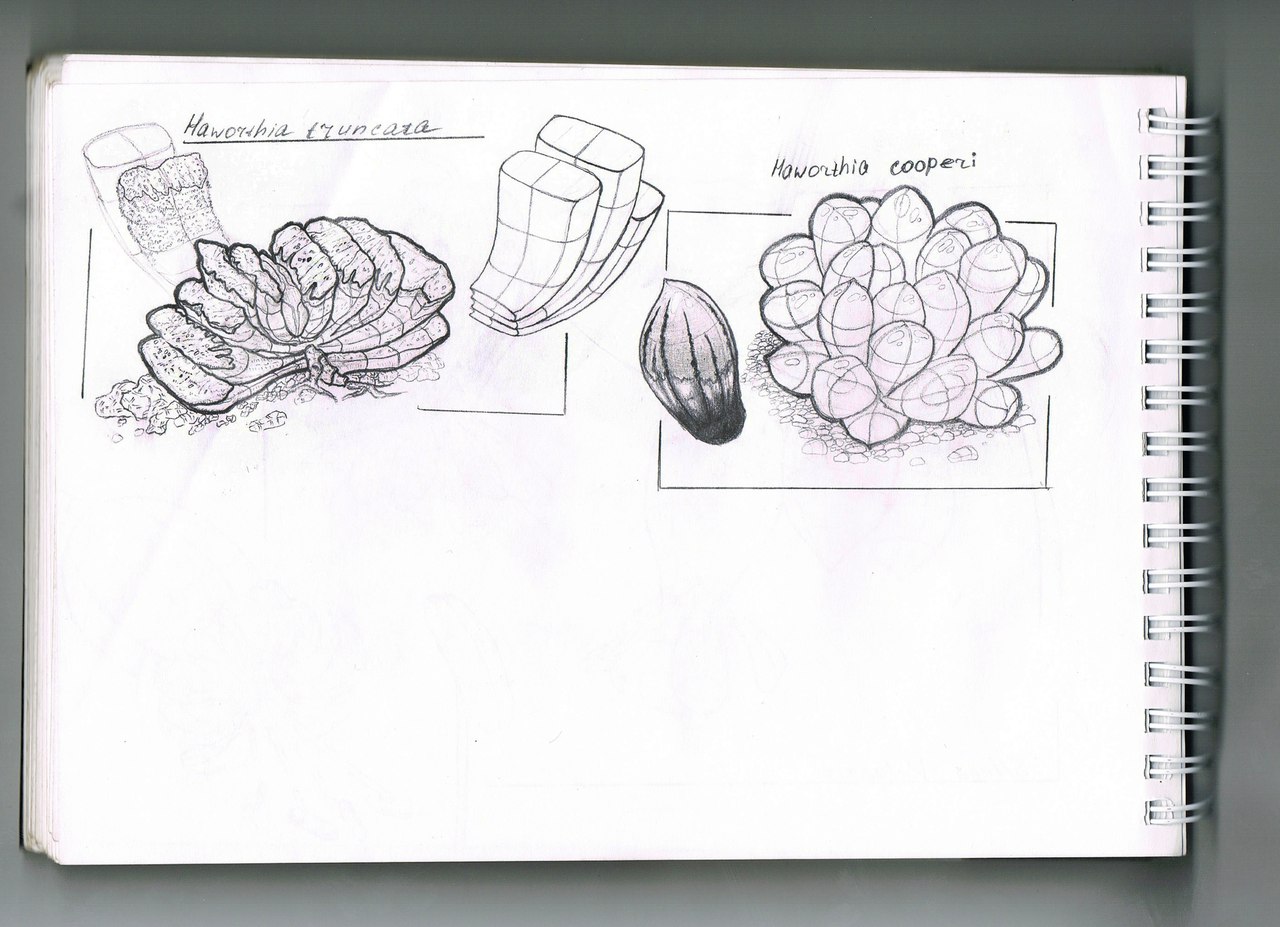 Haworthia truncata
Haworthia cooperi